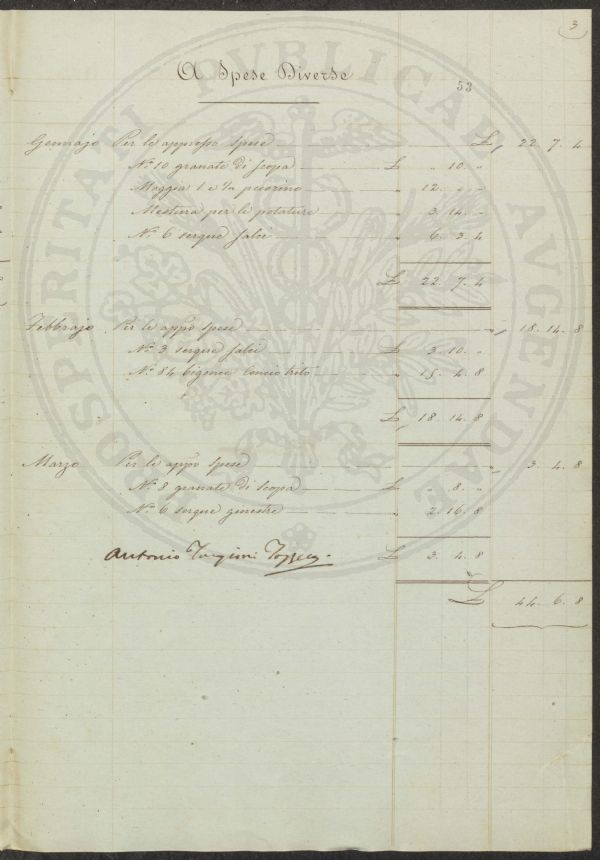 3
A Spese Diverse
53
Gennajo Per le appresso spese £ 22. 7. 4
N.° 10 granate di scopa £ " 10. "
Moggia 1 e ½ pecorino " 12. " "
Mestura per le potature " 3. 14. "
N. 6 serque salci " 6. 3. 4
£ 22. 7. 4
Febbrajo Per le appo spese " 18. 14. 8
N.° 3 serque salci £ 3. 10. "
N.° 84 bigonce concio trito " 15. 4. 8
£ 18. 14. 8
Marzo Per le appo spese " 3. 4. 8
N.° 8 granate di scopa £ " 8. "
N.° 6 serque ginestre " 2. 16. 8
Antonio Targioni Tozzetti £ 3. 4. 8
£ 44. 6. 8
PROSPERITATI PVBLICAE AVGENDAE